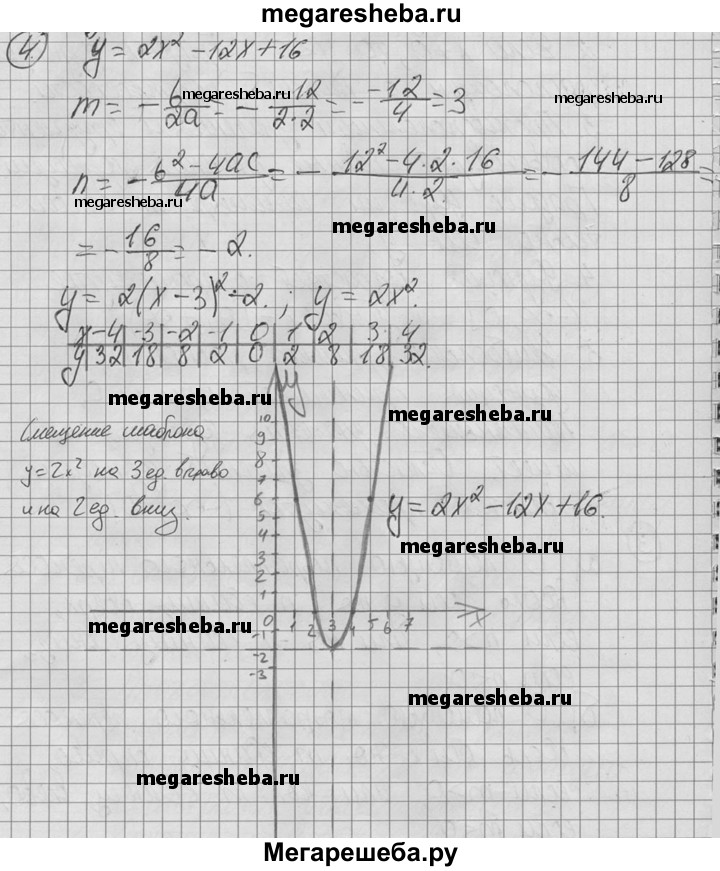 megaresheba.ru
4. y = 2x² - 12x + 16
m = - b/2a = - -12/2·2 = - -12/4 = 3
megaresheba.ru
megaresheba.ru
n = - b² - 4ac/4a = - 12² - 4·2·16/4·2 = - 144 - 128/8 =
megaresheba.ru
megaresheba.ru
= - 16/8 = - 2.
y = 2(x - 3)² - 2. ; y = 2x².
x -4 -3 -2 -1 0 1 2 3 4
y 32 18 8 2 0 2 8 18 32.
megaresheba.ru
y
megaresheba.ru
Смещение шаблона
y = 2x² на 3 ед. вправо
и на 2 ед. вниз.
10
9
8
7
6
5
4
3
2
1
y = 2x² - 12x + 16.
megaresheba.ru
megaresheba.ru
0 1 2 3 4 5 6 7 x
-1
-2
-3
megaresheba.ru
megaresheba.ru
Мегарешеба.ру